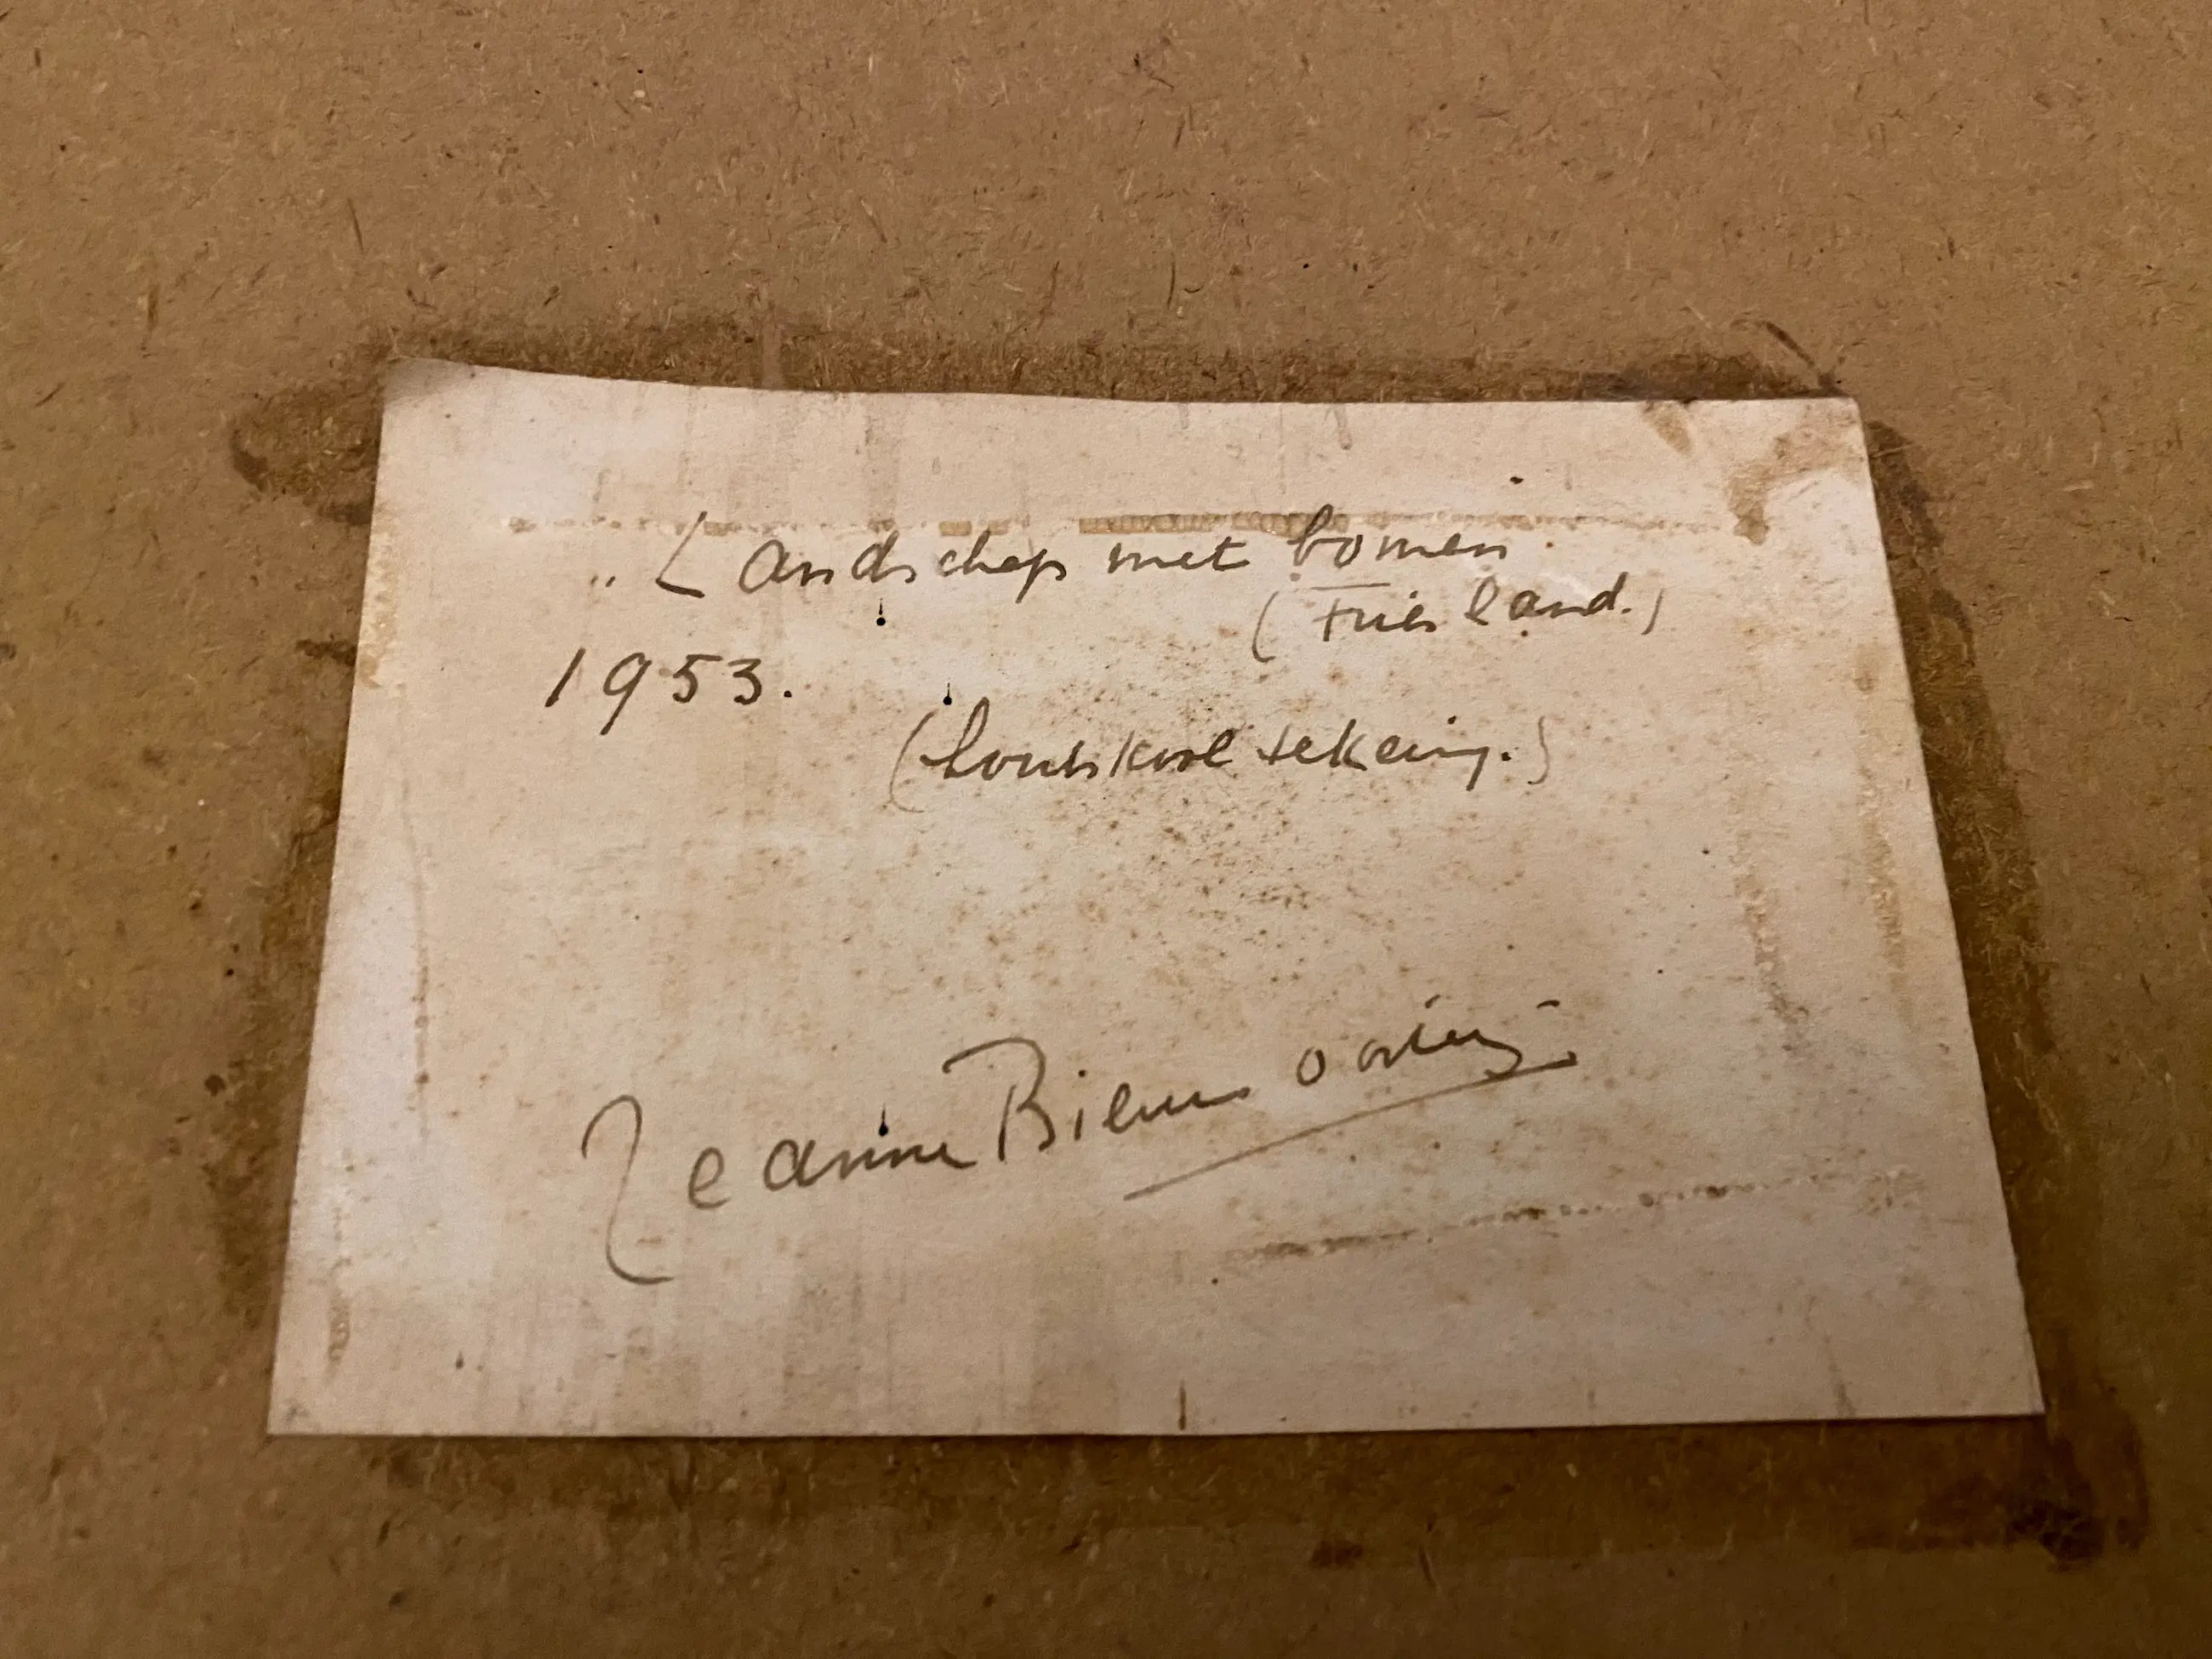 „Landschap met bomen
(Friesland.)
1953.
(houtskool tekening.)
Jeanne Bieruma Oosting